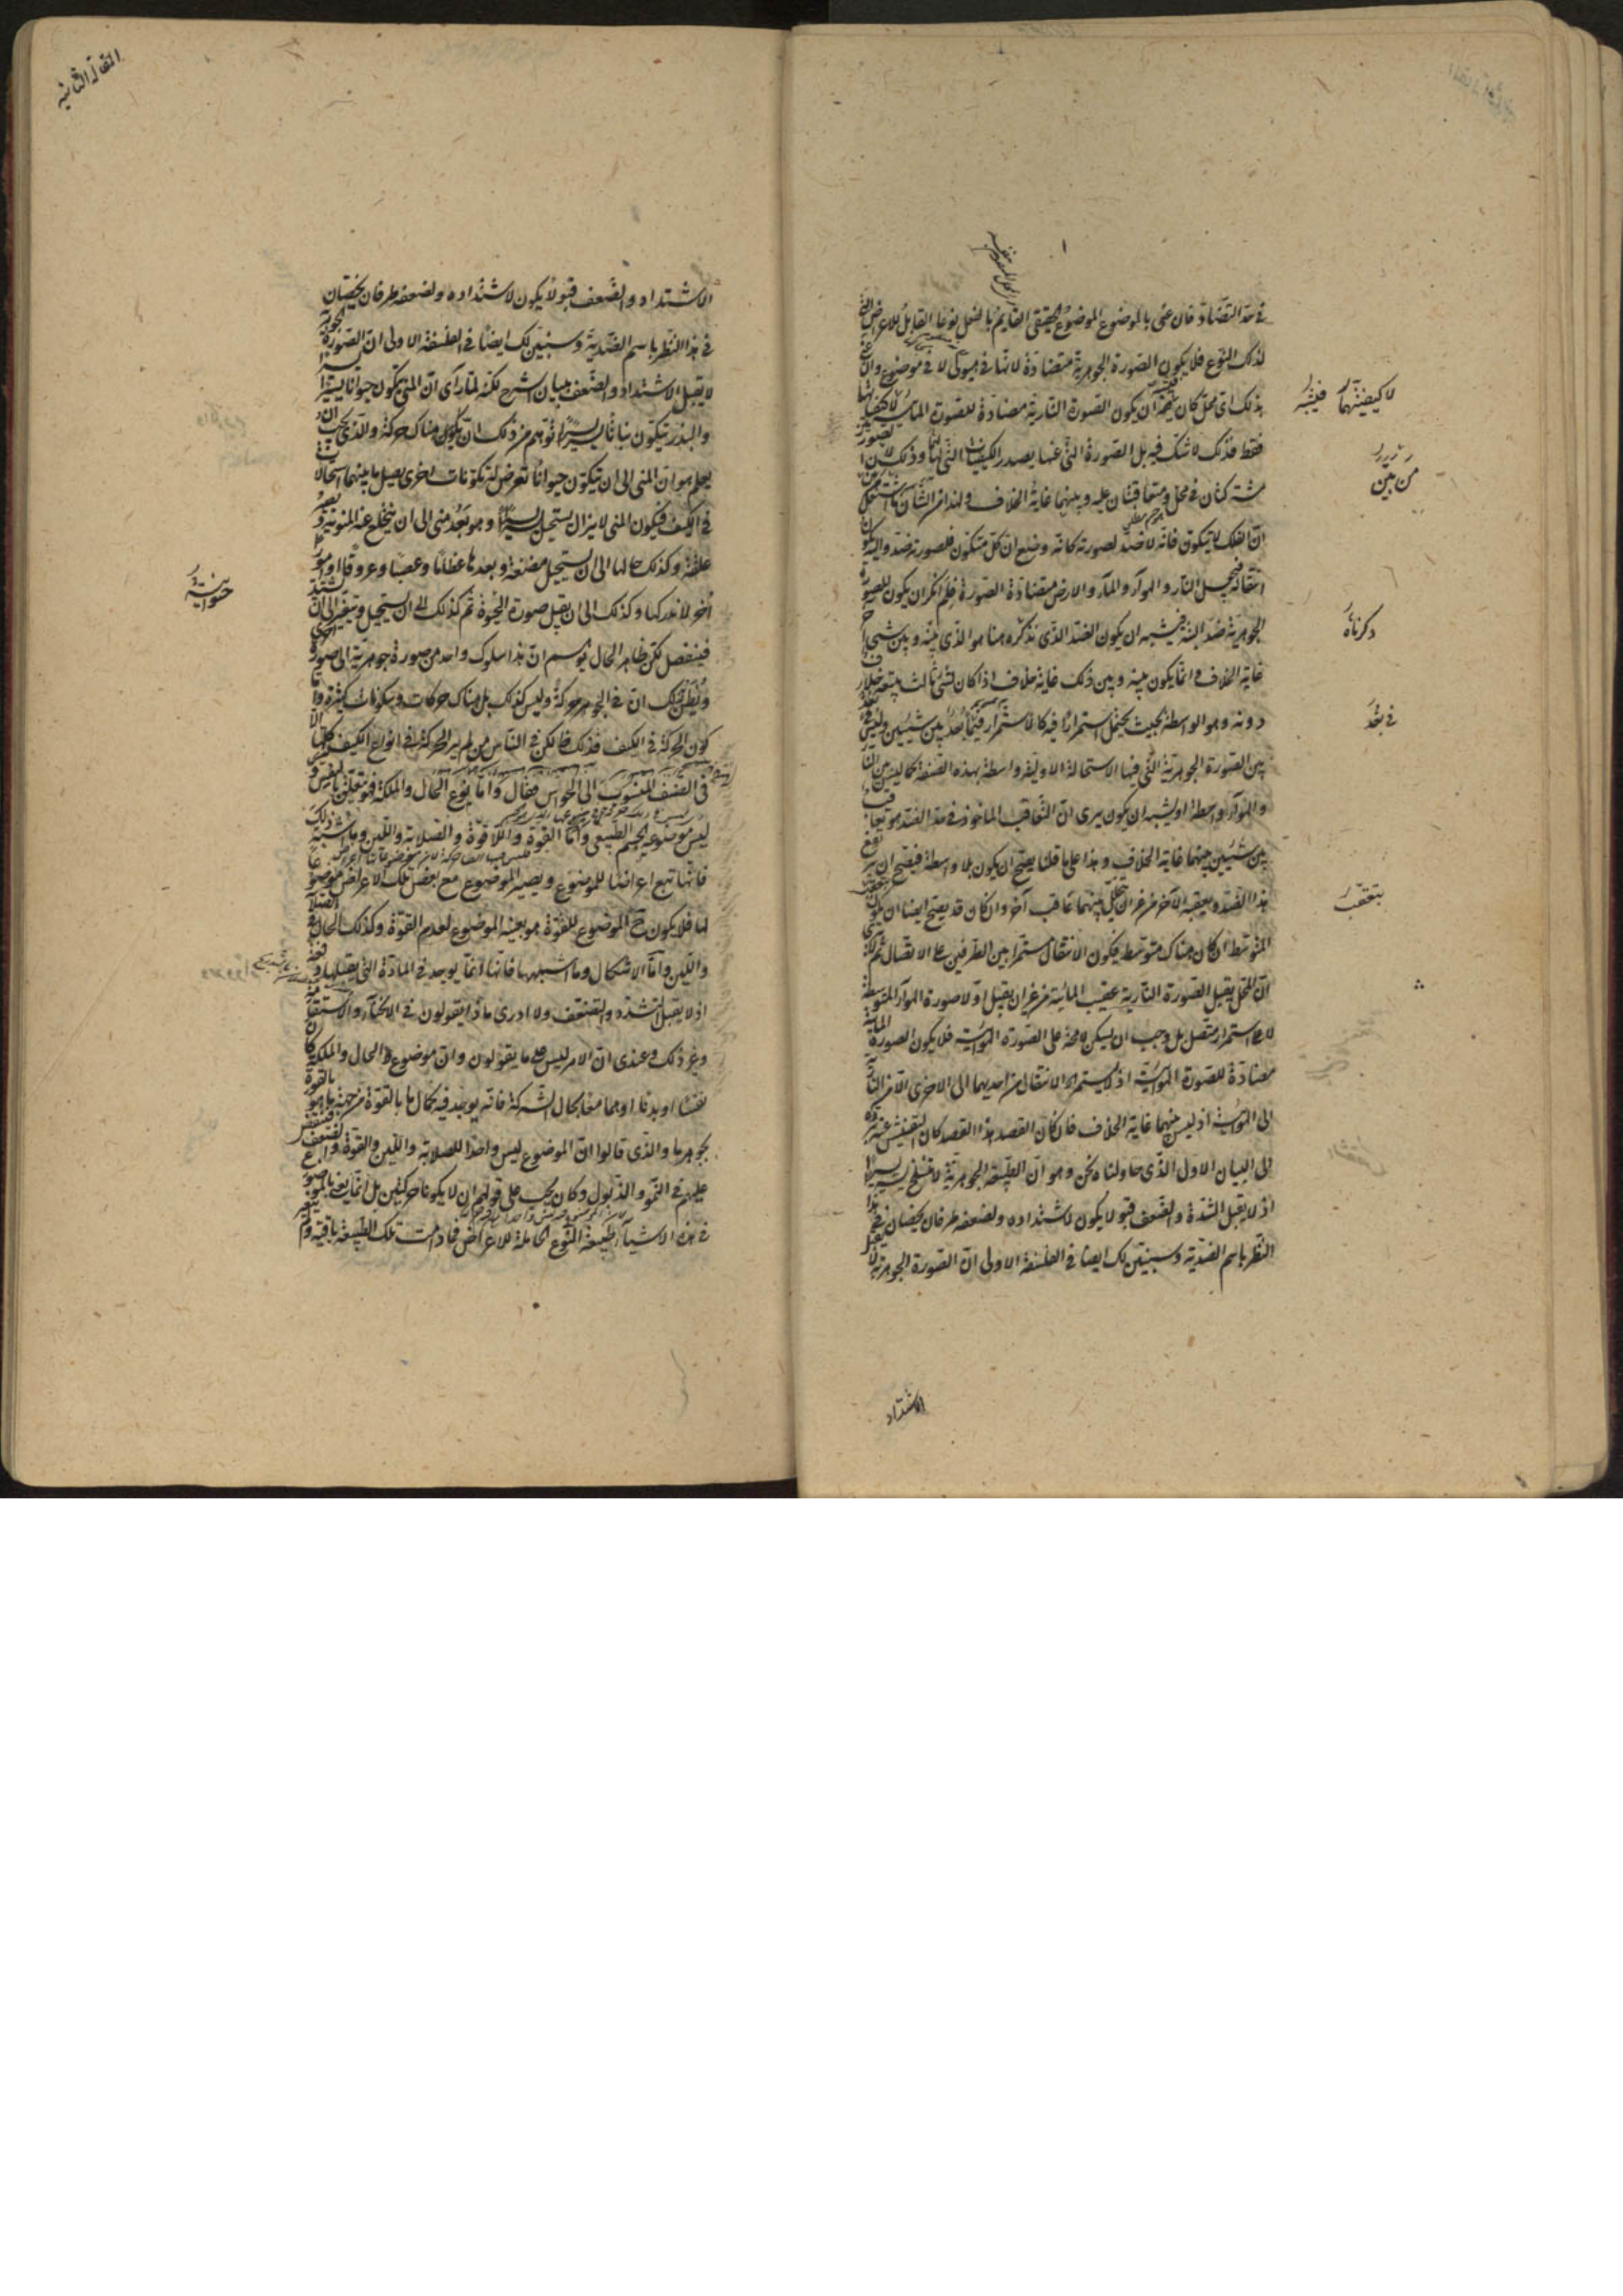 في حد التضاد فان عنى بالموضوع الموضوع الحقيقى القايم بالفعل نوعا القابل للاعراض التى
لذلك النوع فلا يكون الصورة الجوهرية متضادة لانها في هيولى لا في موضوع وان عنى
بذلك اى محل كان فيشبه ان يكون الصورة النارية مضادة للصورة المائية لا كيفيتها
فقط فذلك لا شك فيه بل الصورة التى عنها يصدر الكيفيات التى لهما وذلك لان الصورتين
مشتركتان في محل ومتعاقبتان عليه وبينهما غاية الخلاف ولهذا من الشأن ما اشتغل من بين
ان الفلك لا يتكون فانه لا ضد لصورته كانه وضع ان كل متكون فلصورته ضد واليه يكون
انتقاله فجعل النار والهوآء والمآء والارض متضادة الصورة فلم انكر ان يكون للصورة
الجوهرية ضد البتة فيشبه ان يكون الضد الذى نذكره هنا هو الذى بينه وبين شيى آخر
غاية الخلاف وانما يكون بينه وبين ذلك غاية خلاف اذا كان شئ ثالث بينه خلاف
دونه وهو الواسطة بحيث يحتمل استمرارا فيه كالاستمرار فيما بعد بين شيئين وليس
بين الصورة الجوهرية التى فيها الاستحالة الاولية واسطة بهذه الصفة كما ليس بين النار
والهوآء واسطة او يشبه ان يكون يرى ان التعاقب الماخوذ في حد الضد هو تعاقب
بين شيئين بينهما غاية الخلاف وهذا على ما قلنا يصح ان يكون بلا واسطة فيصح ان يرتفع
هذا الضد ويعقبه الآخر من غير ان يتخلل بينهما عاقب آخر وان كان قد يصح ايضا ان يكون
المتوسط ان كان هناك متوسط فيكون الانتقال مستمرا بين الطرفين على الاتصال ثم لا يرى
ان المحل يقبل الصورة النارية عقيب المائية من غير ان يقبل اولا صورة الهوآء المتوسطة
لا على استمرار متصل بل وجب ان يسكن لا محة على الصورة الهوائية فلا يكون الصورة المائية
مضادة للصورة الهوائية اذ لا يستمر الانتقال من احديهما الى الاخرى الا من النارية
الى الهوائية اذ ليس بينهما غاية الخلاف فان كان القصد هذا القصد كان التفتيش عنه
الى البيان الاول الذى حاولناه نحن وهو ان الطبيعة الجوهرية لا تنسلخ يسيرا يسيرا
اذ لا يقبل الشدة والضعف قبولا يكون لاشتداده ولضعفه طرفان يخصان في هذا
النظر باسم الضدية وسنبين لك ايضا في الفلسفة الاولى ان الصورة الجوهرية لا يقبل
لا كيفيتهما فيشبه
من بين
ذكرناه
في بعد
يتعقب
الاشتداد
المقالة الثانية
الاشتداد والضعف قبولا يكون لاشتداده ولضعفه طرفان يخصان
في هذا النظر باسم الضدية وسنبين لك ايضا في الفلسفة الاولى ان الصورة الجوهرية
لا يقبل الاشتداد والضعف ببيان اشرح لكنه لما رآى ان المنى يتكون حيوانا يسيرا يسيرا
والبذر يتكون نباتا يسيرا يسيرا توهم من ذلك ان يكون هناك حركة والذى يجب ان
يعلم هو ان المنى الى ان يتكون حيوانا تعرض له تكونات اخرى يصل ما بينهما استحالات
في الكيف فيكون المنى لا يزال يستحيل يسيرا يسيرا وهو بعد منى الى ان ينخلع عنه المنوية ويصير
علقة وكذلك حالها الى ان يستحيل مضغة وبعدها عظاما وعصبا وعروقا وامور
أخر لا ندركها وكذلك الى ان يقبل صورة الحيوة ثم كذلك الى ان يستحيل ويتغير الى ان يشتد
فينفصل لكن ظاهر الحال يوهم ان هذا سلوك واحد من صورة جوهرية الى صورة اخرى
ويظن لذلك ان في الجوهر حركة وليس كذلك بل هناك حركات وسكونات كثيرة واما
كون الحركة في الكيف فذلك ظ لكن في الناس من لم ير الحركة في انواع الكيف كلها الا
في الصنف المنسوب الى الحواس فقال واما نوع الحال والملكة فهو متعلق بالنفس و
ليس موضوعه الجسم الطبيعى واما القوة واللاقوة والصلابة واللين وما اشبه ذلك
فانها تتبع اعراضا للموضوع ويصير الموضوع مع بعض تلك الاعراض موضوعا
لها فلا يكون ح الموضوع للقوة هو بعينه الموضوع لعدم القوة وكذلك الحال في الصلابة
واللين واما الاشكال وما اشبهها فانها انما يوجد في المادة التى يقبلها دفعة
اذ لا يقبل التشدد والتضعف ولا ادرى ماذا يقولون في الانحنآء والاستقامة
وغير ذلك وعندى ان الامر ليس على ما يقولون وان موضوع الحال والملكة كان
نفسا او بدنا او هما معا بحال الشركة فانه يوجد فيه كمال ما بالقوة من جهة ما هو بالقوة
بجوهرها والذى قالوا ان الموضوع ليس واحدا للصلابة واللين والقوة والضعف فينتقض
عليهم في النمو والذبول وكان يجب على قولهم ان لا يكونا حركتين بل انما يعنى بالموضوع
في هذه الاشيآء الطبيعة النوع الحاملة للاعراض فما دامت تلك الطبيعة باقية ولم يتغير